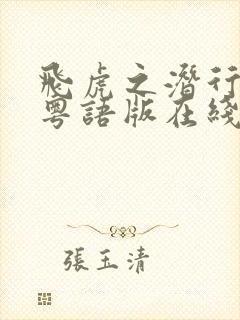 飛虎之潛行
粵語版在綫
張玉清